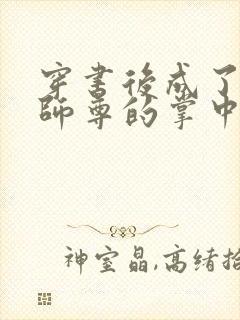 穿書後成了
師尊的掌中
神室晶,高緒拾